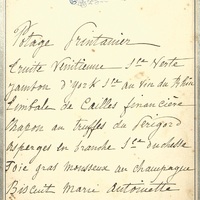 Potage Printanier
Truite Vénitienne Sce Verte
Jambon d'York Sce au vin du Rhin
Timbale de Cailles financière
Chapon au truffes du Périgord
Asperges en branche Sce duchesse
Foie gras mousseux au champagne
Biscuit Marie Antoinette